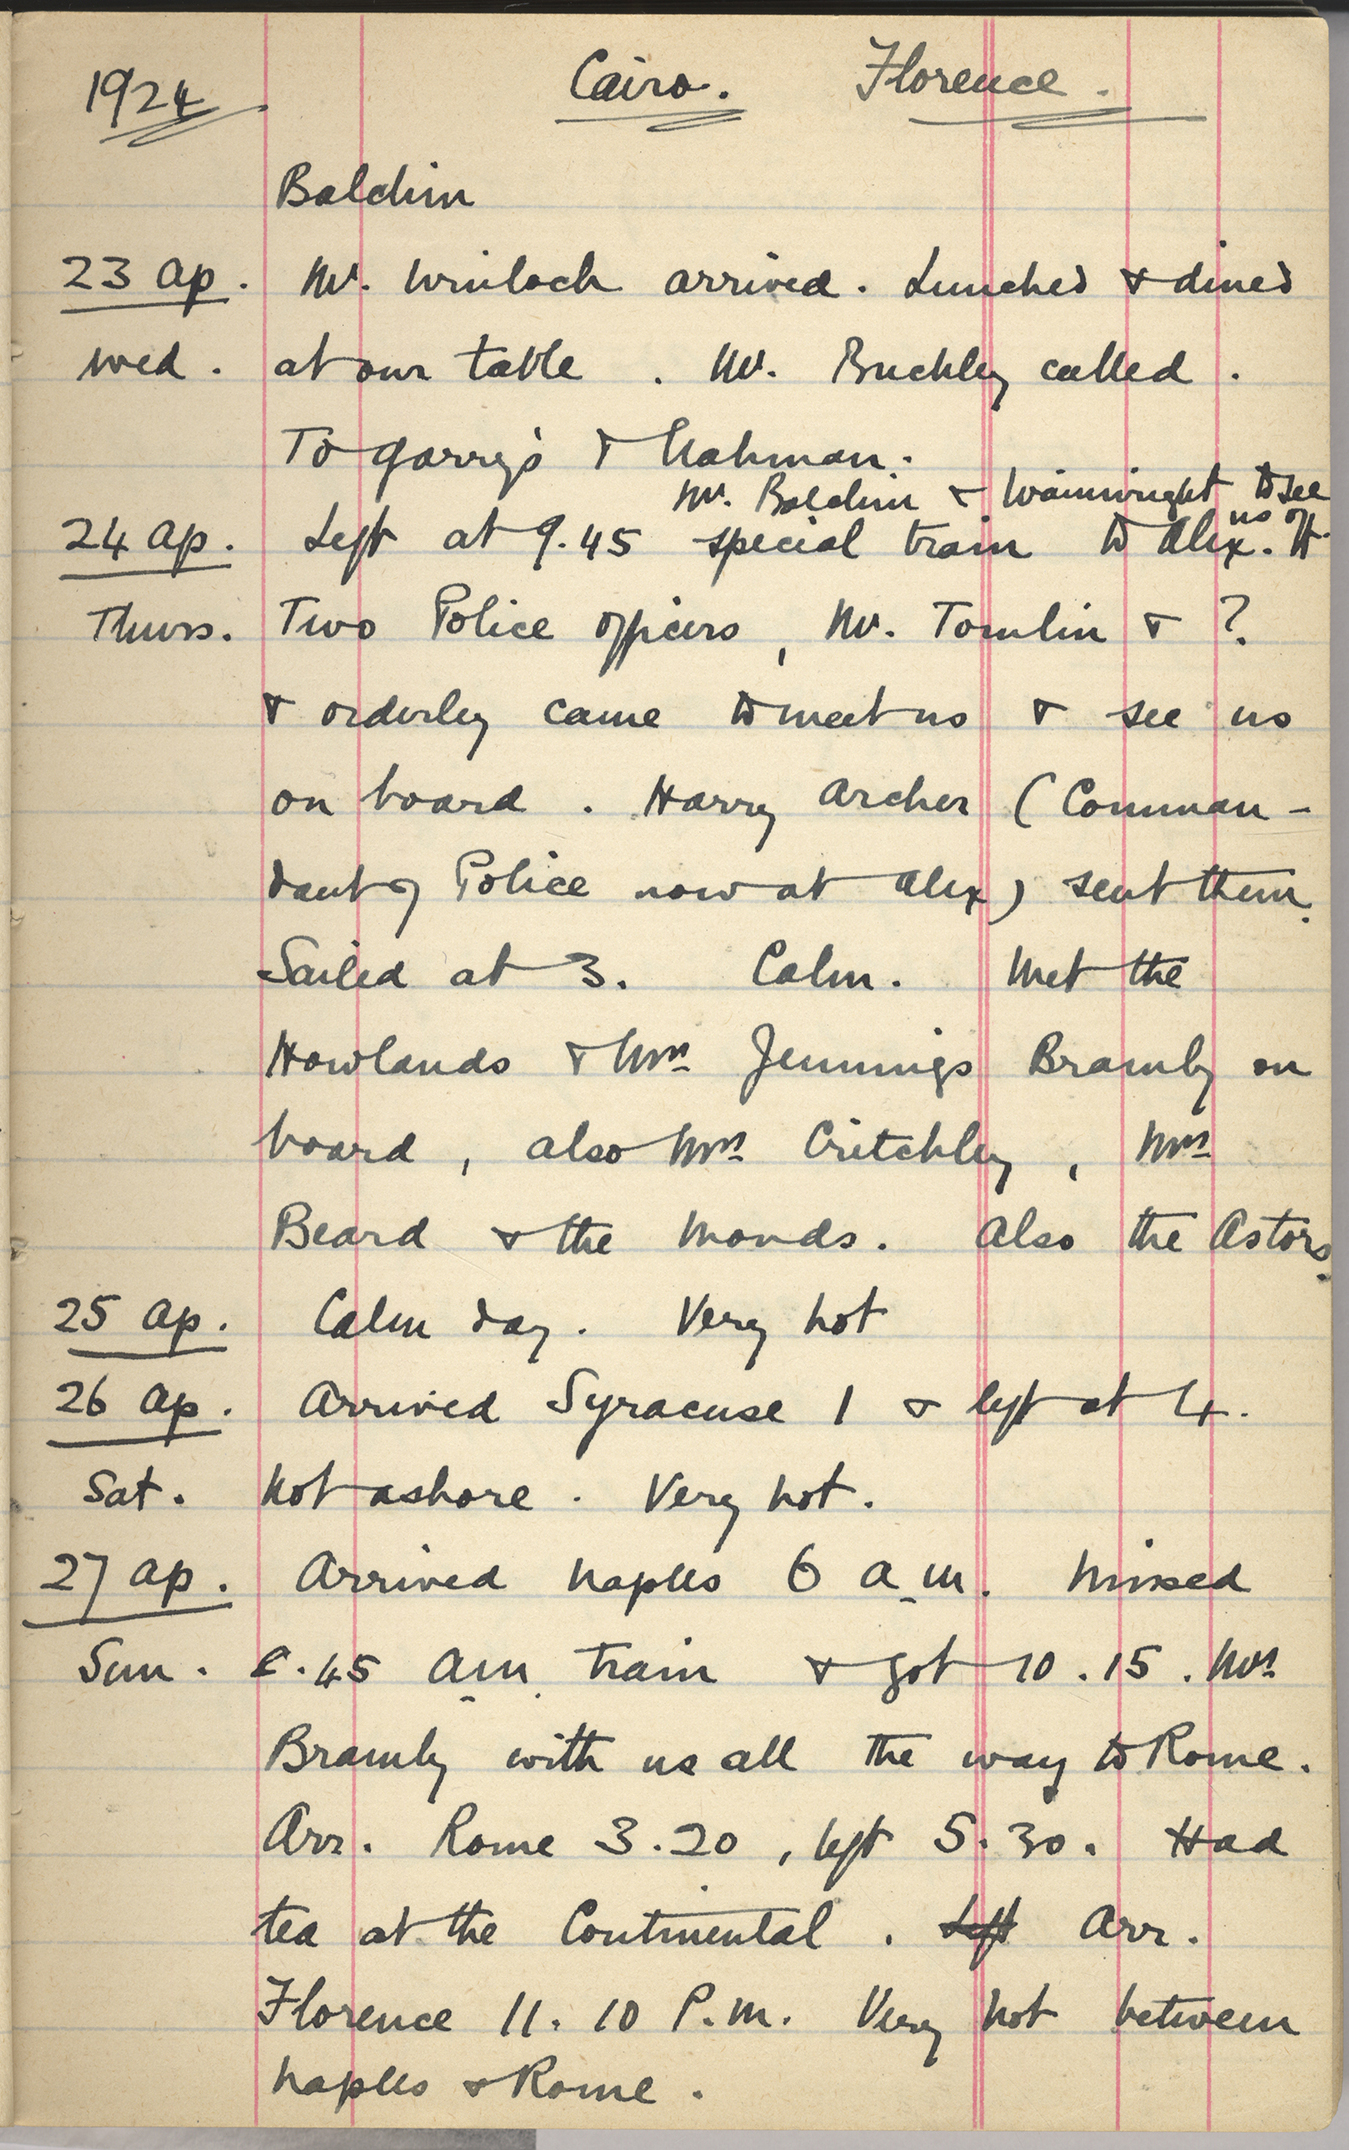 1924 Cairo. Florence.
Baldin
23 Ap. Mr. Winlock arrived. Lunched & dined
Wed. at our table. Mr. Buckley called.
To Garry's & Nahman.
Mr. Baldin & Wainwright to see
us off.
24 Ap. Left at 9.45 special train to Alex.
Thurs. Two Police officers, Mr. Tomlin & ?
& orderley came to meet us & see us
on board. Harry Archer (Comman-
dant of Police now at Alex) sent them.
Sailed at 3. Calm. Met the
Howlands & Mrs Jennings Bramly on
board, also Mrs Critchley, Mrs
Beard & the Monds. Also the Astors.
25 Ap. Calm day. Very hot
26 Ap. Arrived Syracuse 1 & left at 4.
Sat. Not ashore. Very hot.
27 Ap. Arrived Naples 6 a.m. Missed
Sun. .45 am train & got 10.15. Mrs
Bramly with us all the way to Rome.
Arr. Rome 3.20, left 5.30. Had
tea at the Continental. Left Arr.
Florence 11.10 P.m. Very hot between
Naples & Rome.